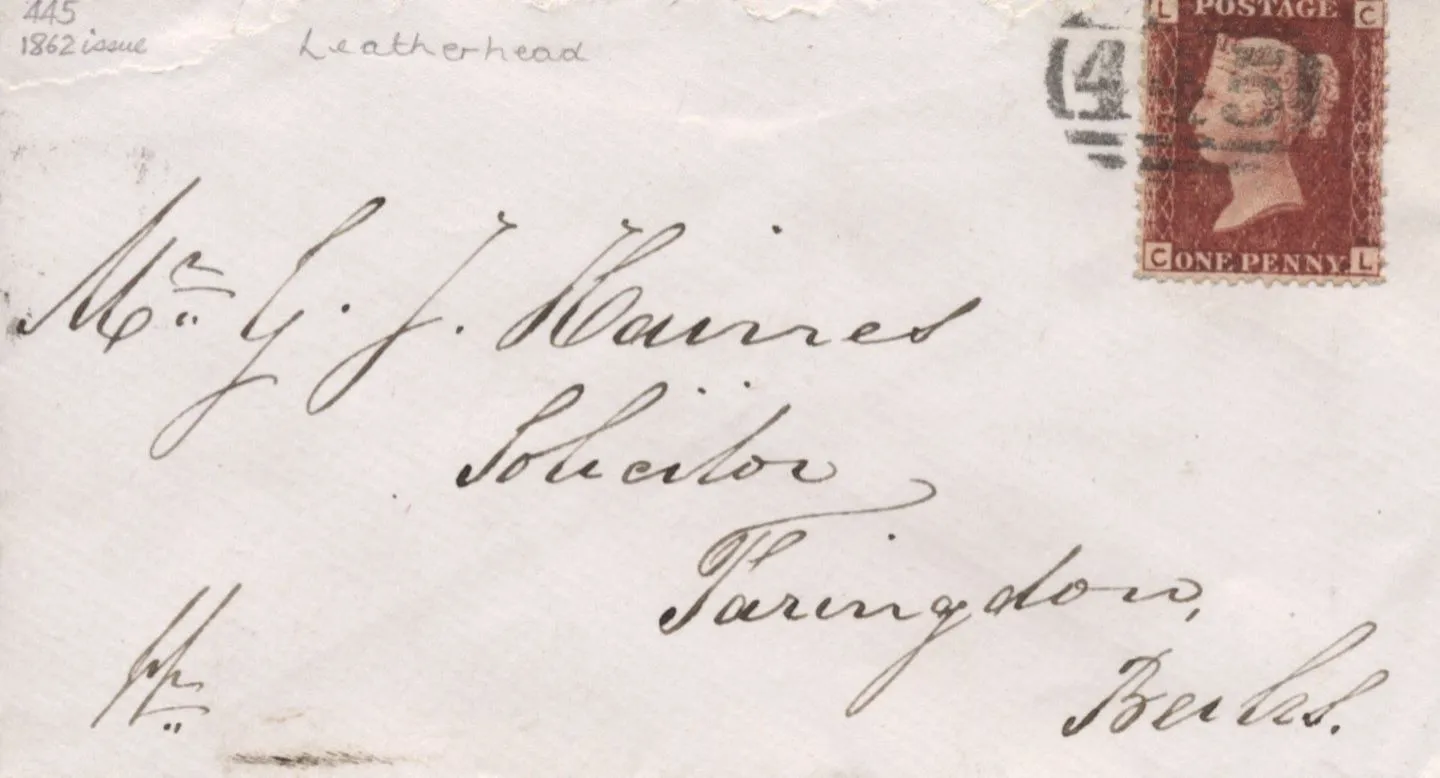 445
1862 issue
Leatherhead
L POSTAGE C
445
C ONE PENNY. L
Mr G. J. Haines
Solicitor
Faringdon,
Berks.